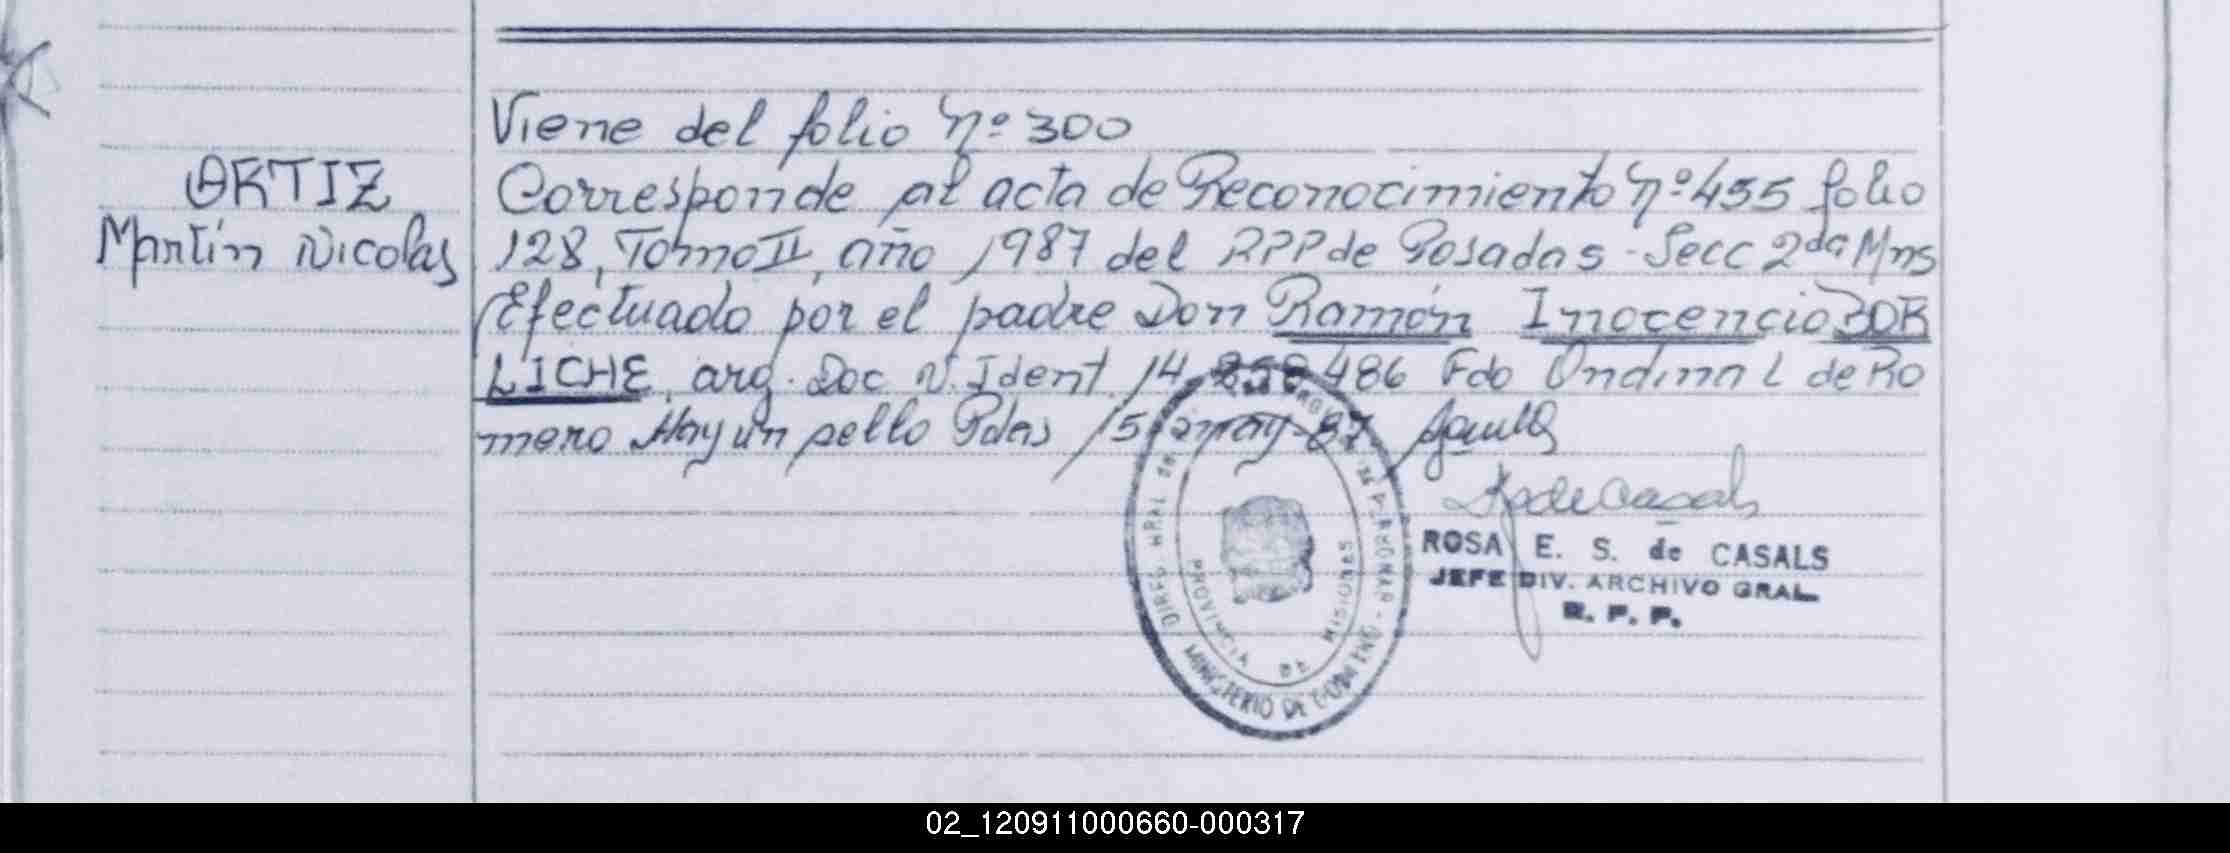 Viene del folio Nº 300
ORTIZ
Martín Nicolas
Corresponde al acta de Reconocimiento Nº 455 folio
128, Tomo II, año 1987 del RPP de Posadas - Secc 2da Mns
Efectuado por el padre Don Ramón Inocencio BOR
LICHE, arg. Doc N. Ident. 14. 486 Fdo Ondina L de Ro
mero Hay un sello Pdas 15 may 87
ROSA E. S. de CASALS
JEFE DIV. ARCHIVO GRAL.
R. P. P.
PROVINCIA DE MISIONES
MINISTERIO DE GOBIERNO
02_120911000660-000317